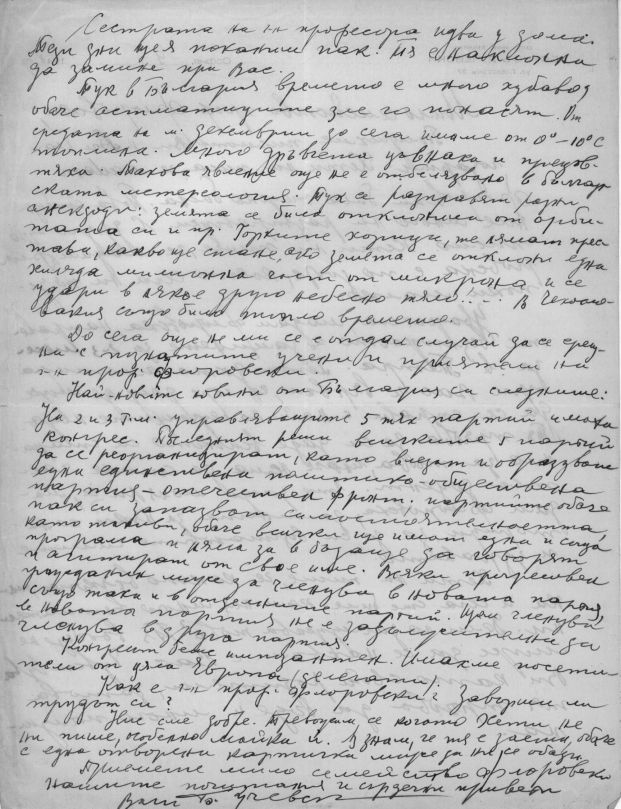 Сестрата на г-н професора идва у дома.
Тези дни ще я поканим пак. Тя е наклонна
да замине при Вас.
Тук в България времето е много хубаво,
обаче астматиците зле го понасят. От
средата на м. декември до сега имаме от 0° – 10° С
топлина. Много дръвчета цъвнаха и
Такова явление още не е отбелязвано в българ-
ската метеорология. Тук се разправят разни
анекдоти: земята се била отклонила от орби-
тата си и пр. Горките хорица, те нямат предс-
тава, какво ще стане, ако земята се отклони една
хилядо милионна част от микрона и се
удари в някое друго небесно тяло... В Чехосло-
вакия също било топло времето.
До сега още не ми се е отдал случай да се срещ-
на с познатите учени и приятели на
г-н проф. Флоровски.
Най-новите новини от България са следните:
На 2 и 3 т.м. управляващите 5 тях партии имаха
конгрес. Последният реши всичките 5 партии
да се реорганизират, като влезат и образуват
една единствена политико-обществена
партия – отечествен фронт. партиите обаче
пак си запазват самостоятелността
като такива, обаче всички ще имат една и съща
програма и няма за в бъдаще да говорят
и агитират от свое име. Всеки прогресивен
гражданин може да членува в новата партия,
също така и в отделните партии. Щом членува
в новата партия не е задължително да
членува в друга партия.
Конгресът беше импозантен. Имахме посети-
тели от цяла Европа (делегати).
Как е г-н проф. Флоровски? Завърши ли
трудът си?
Ние сме добре. Тревожим се когато Кети не
ни пише, особено майка и. Аз знам, че тя е заета, обаче
с една отворена картичка може да ни се обади.
Приемете мило семейство Флоровски
нашите почитания и сърдечни привети
Ваш